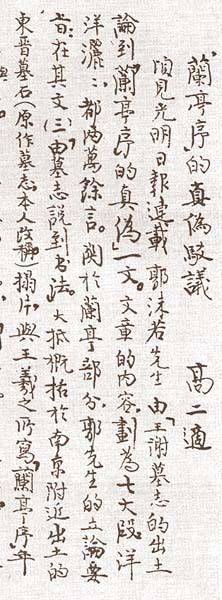 「蘭亭序」的真偽駁議　高二適
頃見光明日報連載郭沫若先生「由王謝墓志的出土
論到「蘭亭序」的真偽」一文。文章的内容，劃為七大段，洋
洋灑灑，都為萬餘言。関於蘭亭部分，郭先生的立論要
旨：在其文（三）「由墓志說到书法。」大抵概括於南京附近出土的
東晋墓石（原作墓志，本人改稱）搨片，與王羲之所寫「蘭亭序」年